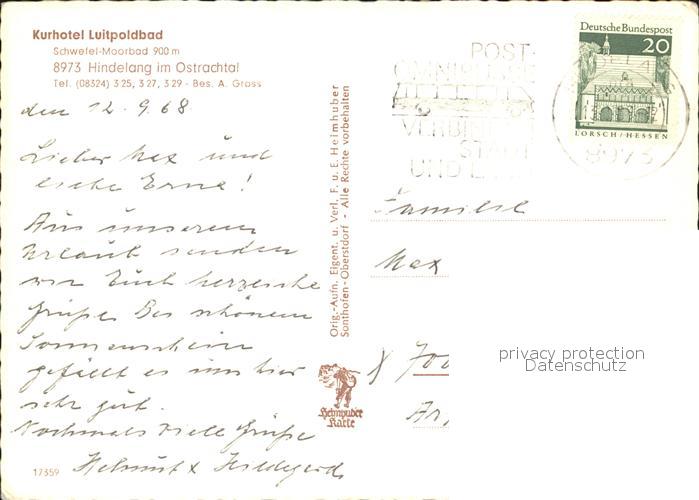 Kurhotel Luitpoldbad
Schwefel-Moorbad 900 m
8973 Hindelang im Ostrachtal
Tel. (08324) 3 25, 3 27, 3 29 - Bes. A. Gross
den 12.9.68
Lieber Max und
liebe Erna!
Aus unserem
Urlaub senden
wir Euch herzliche
Grüße. Bei schönem
Sonnenschein
gefällt es uns hier
sehr gut.
Nochmals viele Grüße
Helmut & Hildegard
17359
Orig.-Aufn. Eigent. u. Verl. F. u. E. Heimhuber
Sonthofen-Oberstdorf - Alle Rechte vorbehalten
Heimhuber
Karte
POST-
OMNIBUSSE
STADT
UND
Deutsche Bundespost
20
LORSCH/HESSEN
8973
Familie
Max
privacy protection
Datenschutz